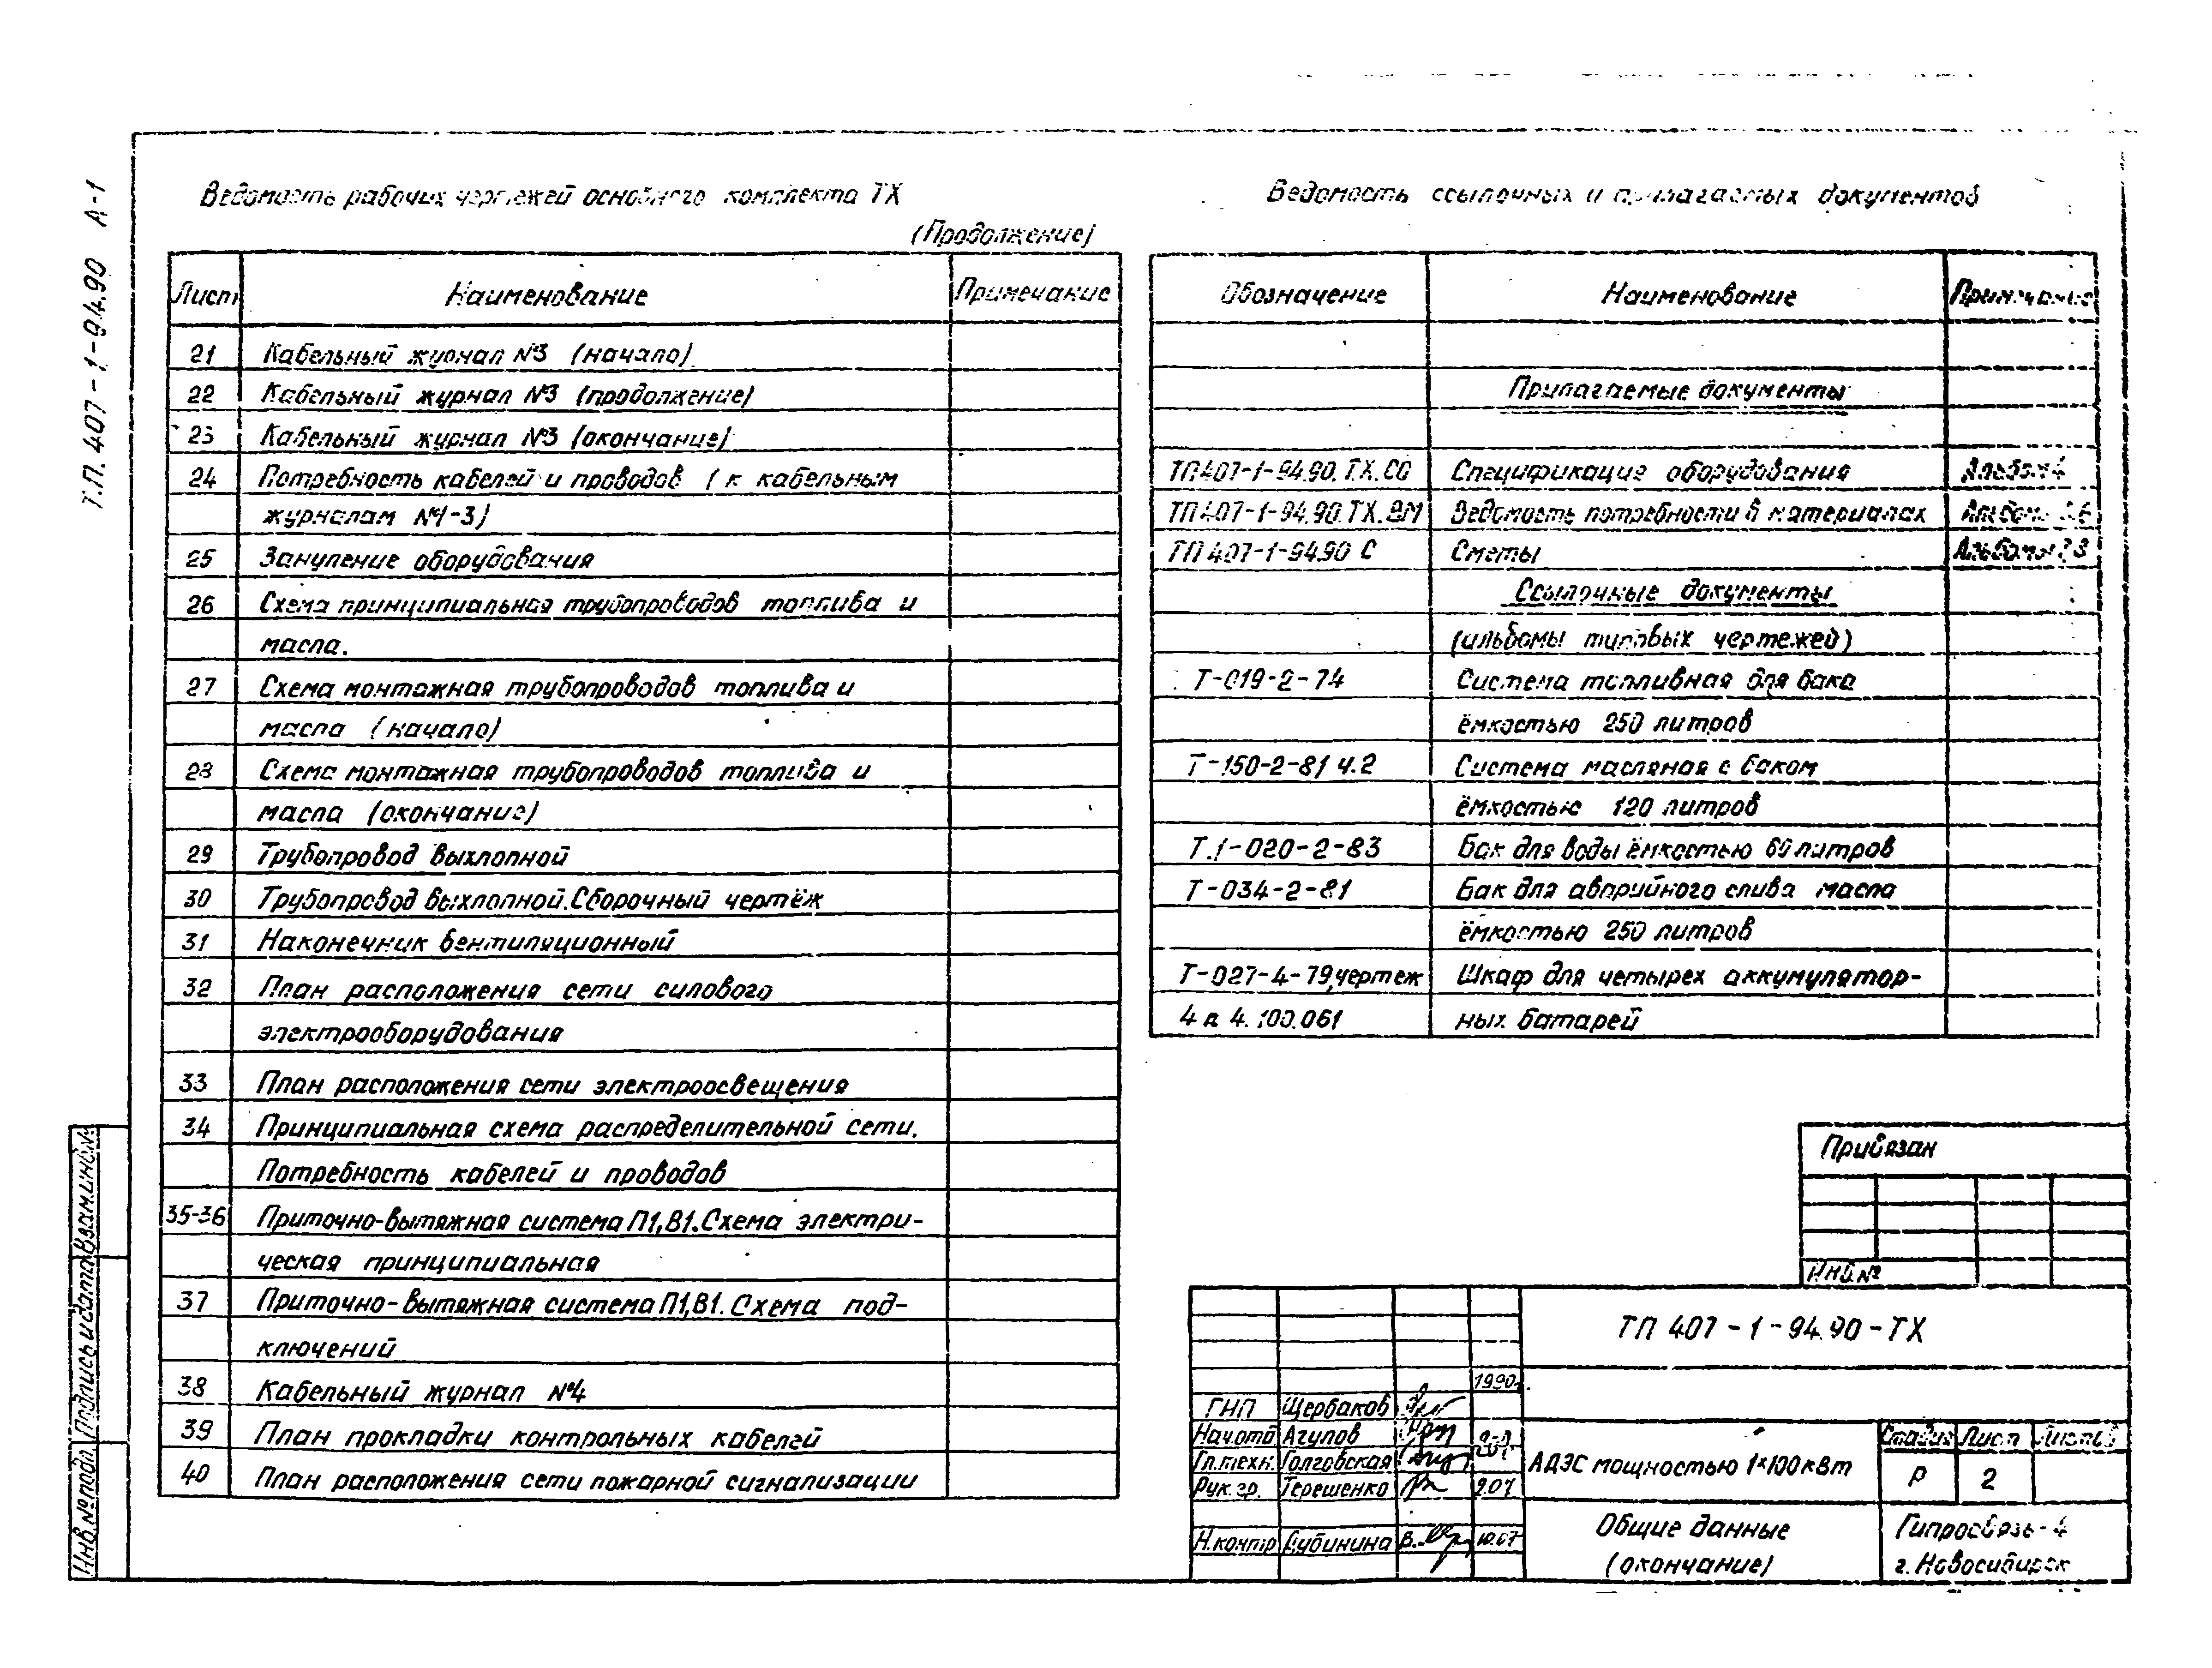 Т.П. 407-1-94.90 А-1
Ведомость рабочих чертежей основного комплекта ТХ
(Продолжение)
Лист Наименование Примечание
21 Кабельный журнал №3 (начало)
22 Кабельный журнал №3 (продолжение)
23 Кабельный журнал №3 (окончание)
24 Потребность кабелей и проводов (к кабельным
журналам №1-3)
25 Зануление оборудования
26 Схема принципиальная трубопроводов топлива и
масла.
27 Схема монтажная трубопроводов топлива и
масла (начало)
28 Схема монтажная трубопроводов топлива и
масла (окончание)
29 Трубопровод выхлопной
30 Трубопровод выхлопной. Сборочный чертёж
31 Наконечник вентиляционный
32 План расположения сети силового
электрооборудования
33 План расположения сети электроосвещения
34 Принципиальная схема распределительной сети.
Потребность кабелей и проводов
35-36 Приточно-вытяжная система П1,В1. Схема электри-
ческая принципиальная
37 Приточно-вытяжная система П1,В1. Схема под-
ключений
38 Кабельный журнал №4
39 План прокладки контрольных кабелей
40 План расположения сети пожарной сигнализации
Ведомость ссылочных и прилагаемых документов
Обозначение Наименование Примечание
Прилагаемые документы
ТП 407-1-94.90.ТХ.СО Спецификация оборудования Альбом 4
ТП 407-1-94.90.ТХ.ВМ Ведомость потребности в материалах Альбом
ТП 407-1-94.90 С Сметы Альбомы
Ссылочные документы
(альбомы типовых чертежей)
Т-019-2-74 Система топливная для бака
ёмкостью 250 литров
Т-150-2-81 ч.2 Система масляная с баком
ёмкостью 120 литров
Т.1-020-2-83 Бак для воды ёмкостью 60 литров
Т-034-2-81 Бак для аварийного слива масла
ёмкостью 250 литров
Т-027-4-79, чертеж Шкаф для четырех аккумулятор-
4.100.061 ных батарей
Привязан
Инв.№
ТП 407-1-94.90-ТХ
1990г.
ГНП Щербаков
Нач.отд Агулов
Гл.техн. Голговская
Рук.гр. Терешенко 9.07
Н.контр Дубинина 10.07
АДЭС мощностью 1×100кВт
Стадия Лист Листов
Р 2
Общие данные
(окончание)
Гипросвязь-4
г. Новосибирск
Взам.инв.№
Подпись и дата
Инв.№ подл.